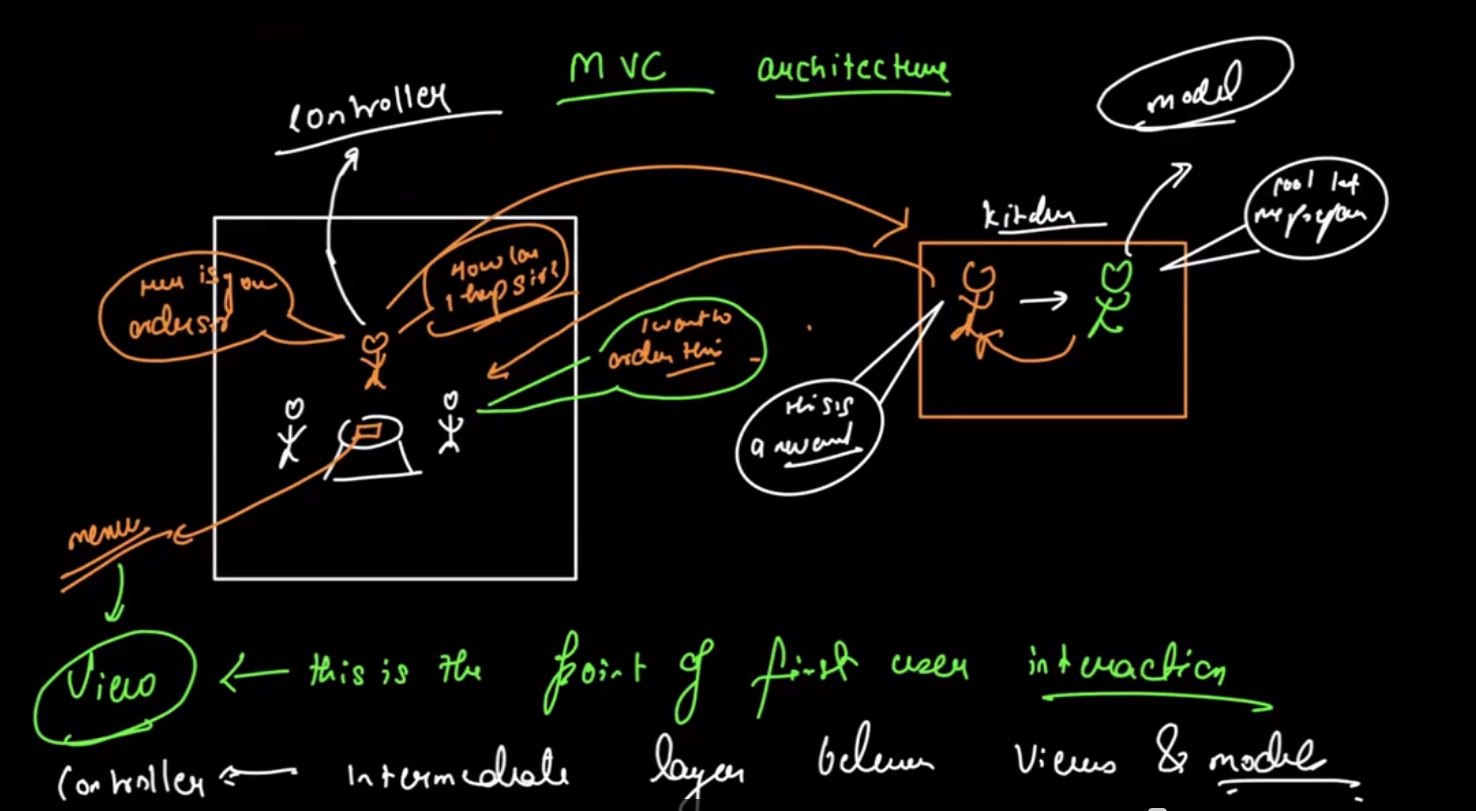 MVC architecture
controller
model
kitchen
cool let
me prepare
How can
I help sir?
Here is your
order sir
I want to
order this
this is
a
menu
View ← this is the point of first user interaction
Controller ← Intermediate layer between Views & model